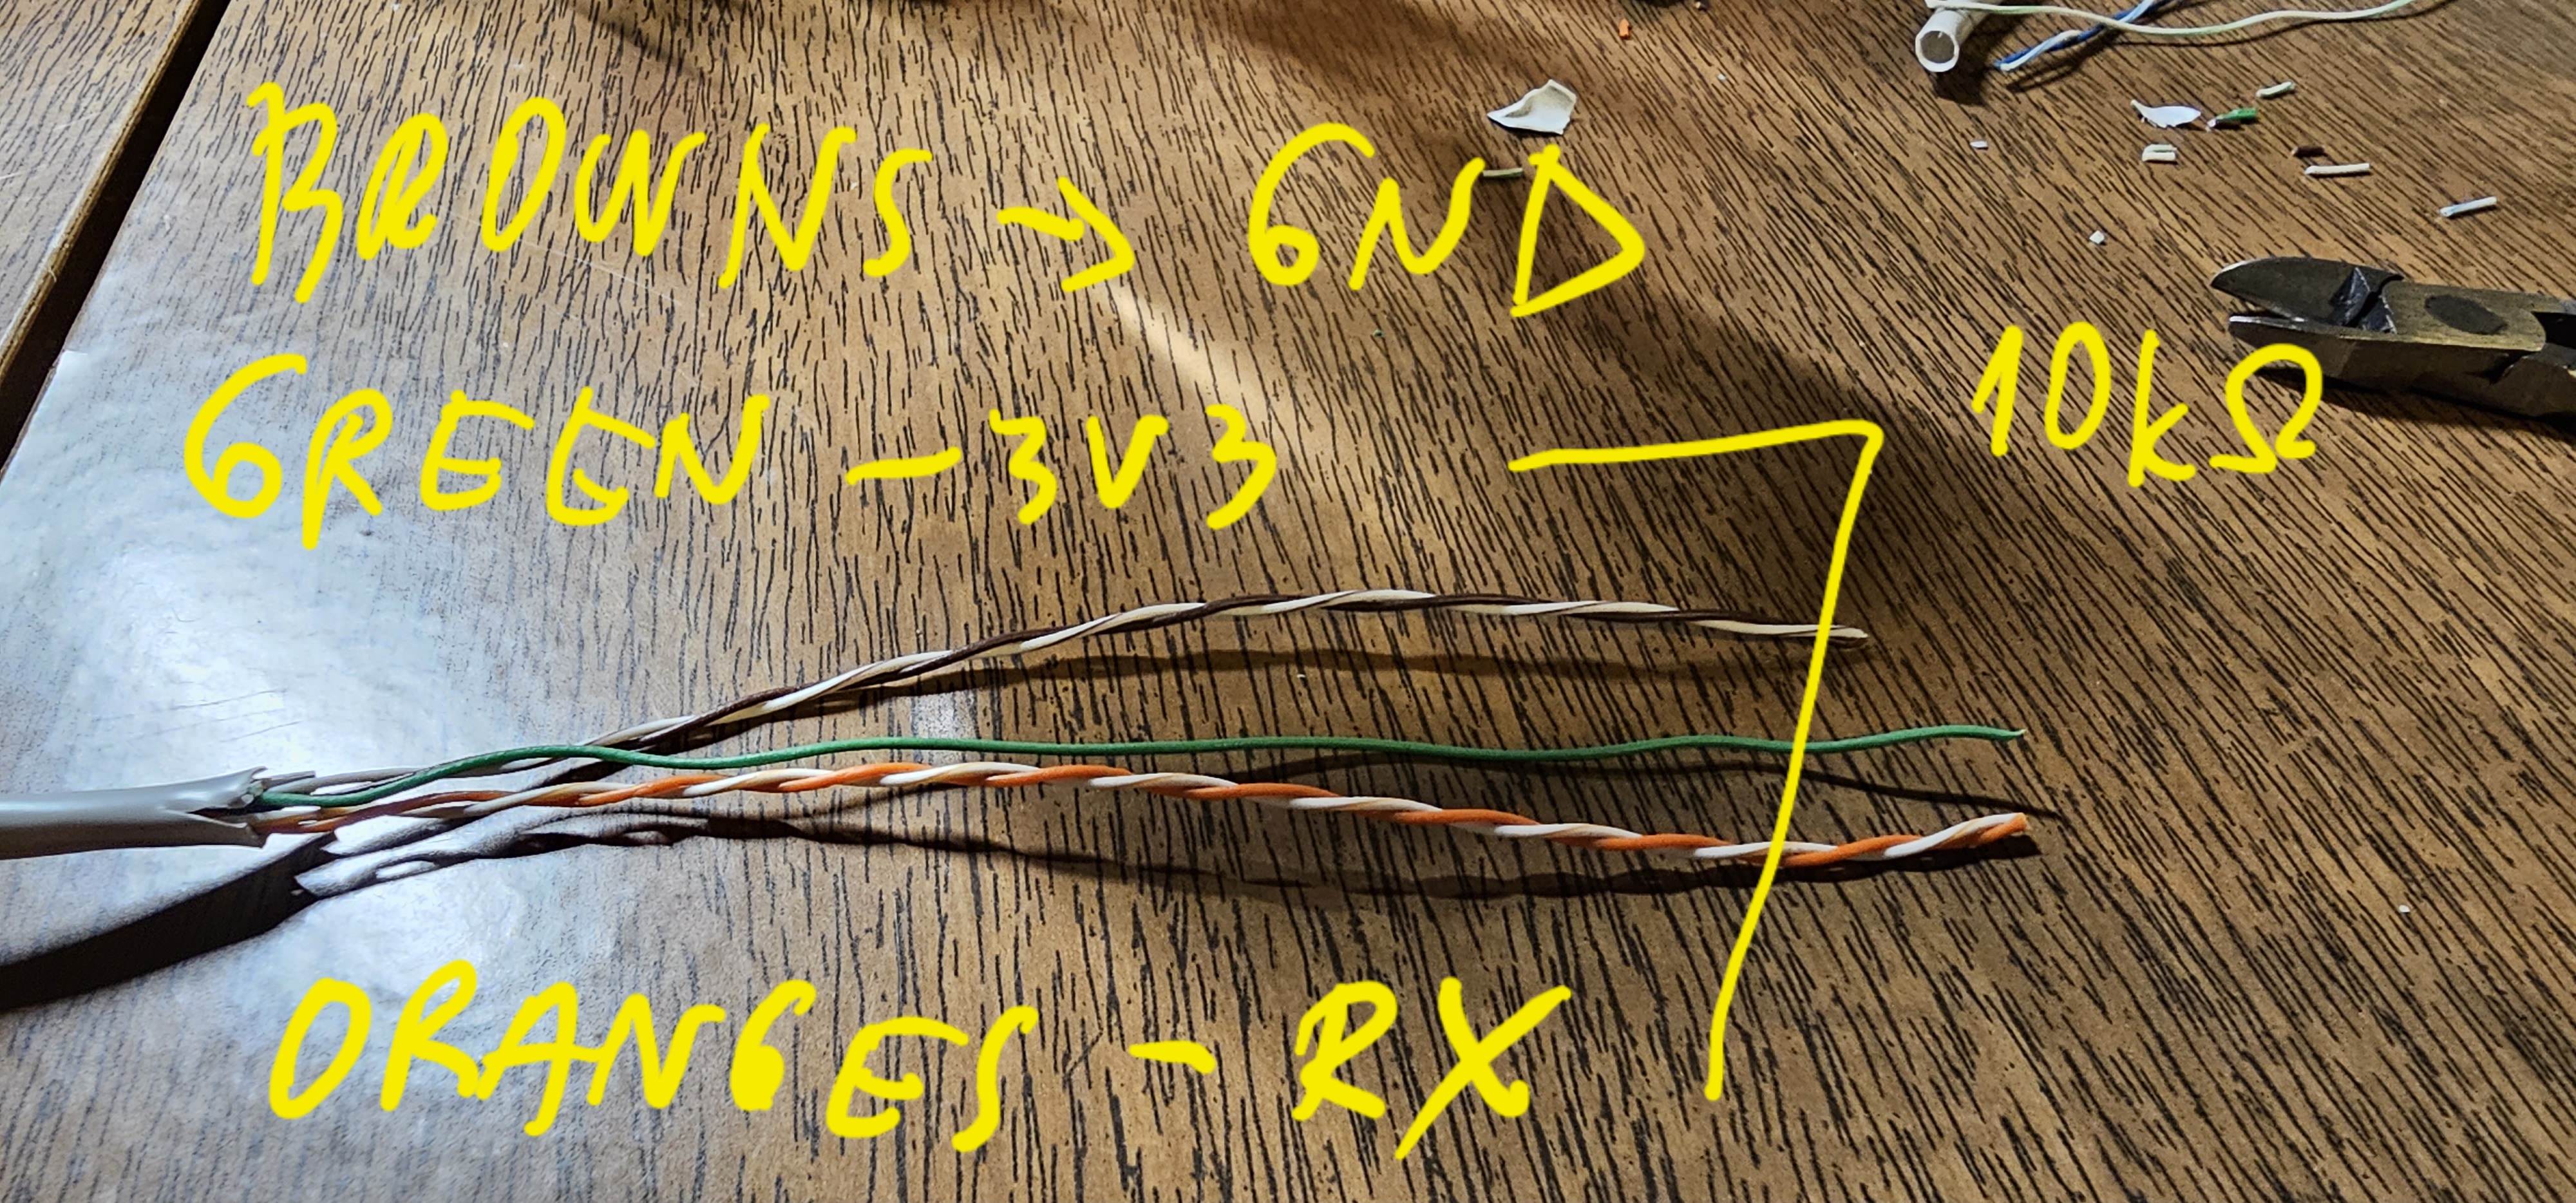 BROWNS → GND
GREEN - 3V3
10kΩ
ORANGES - RX